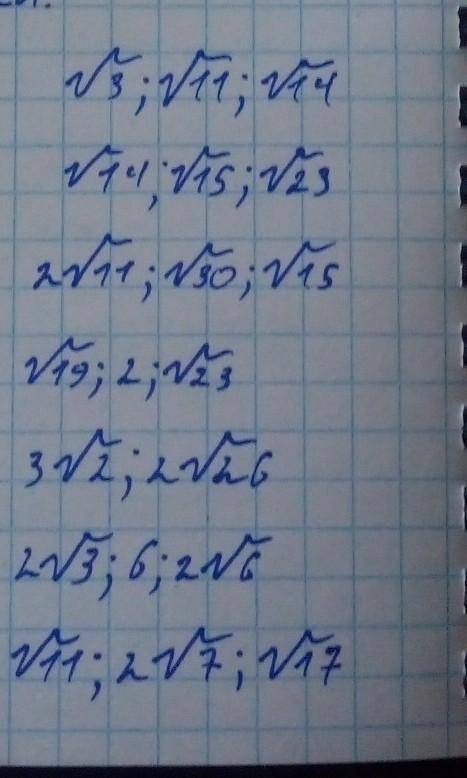 √3; √11; √14
√14; √15; √23
2√11; √30; √15
√19; 2; √23
3√2; 2√26
2√3; 6; 2√6
√11; 2√7; √17